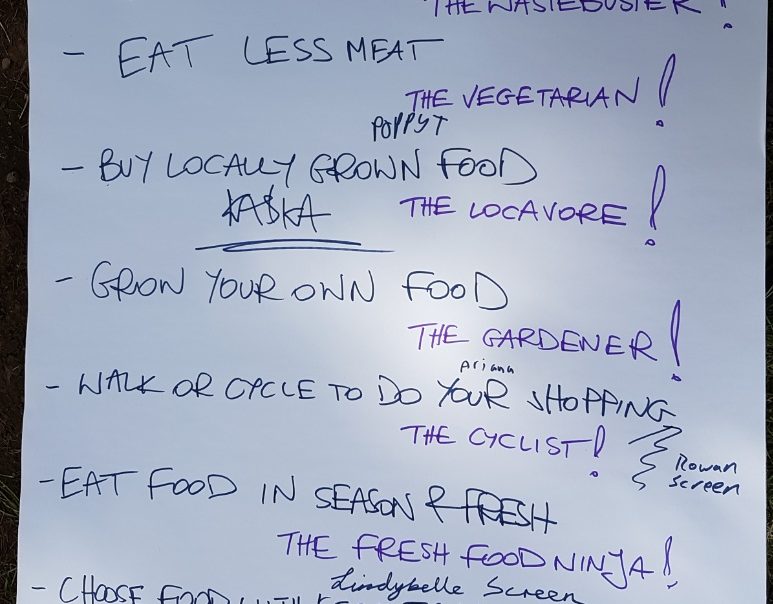 THE WASTEBUSTER!
- EAT LESS MEAT
THE VEGETARIAN!
POPPYT
- BUY LOCALLY GROWN FOOD
KASKA
THE LOCAVORE!
- GROW YOUR OWN FOOD
THE GARDENER!
Ariana
- WALK OR CYCLE TO DO YOUR SHOPPING
THE CYCLIST!
Rowan
Screen
- EAT FOOD IN SEASON & FRESH
THE FRESH FOOD NINJA!
Lindybelle Screen
- CHOOSE FOOD WITH